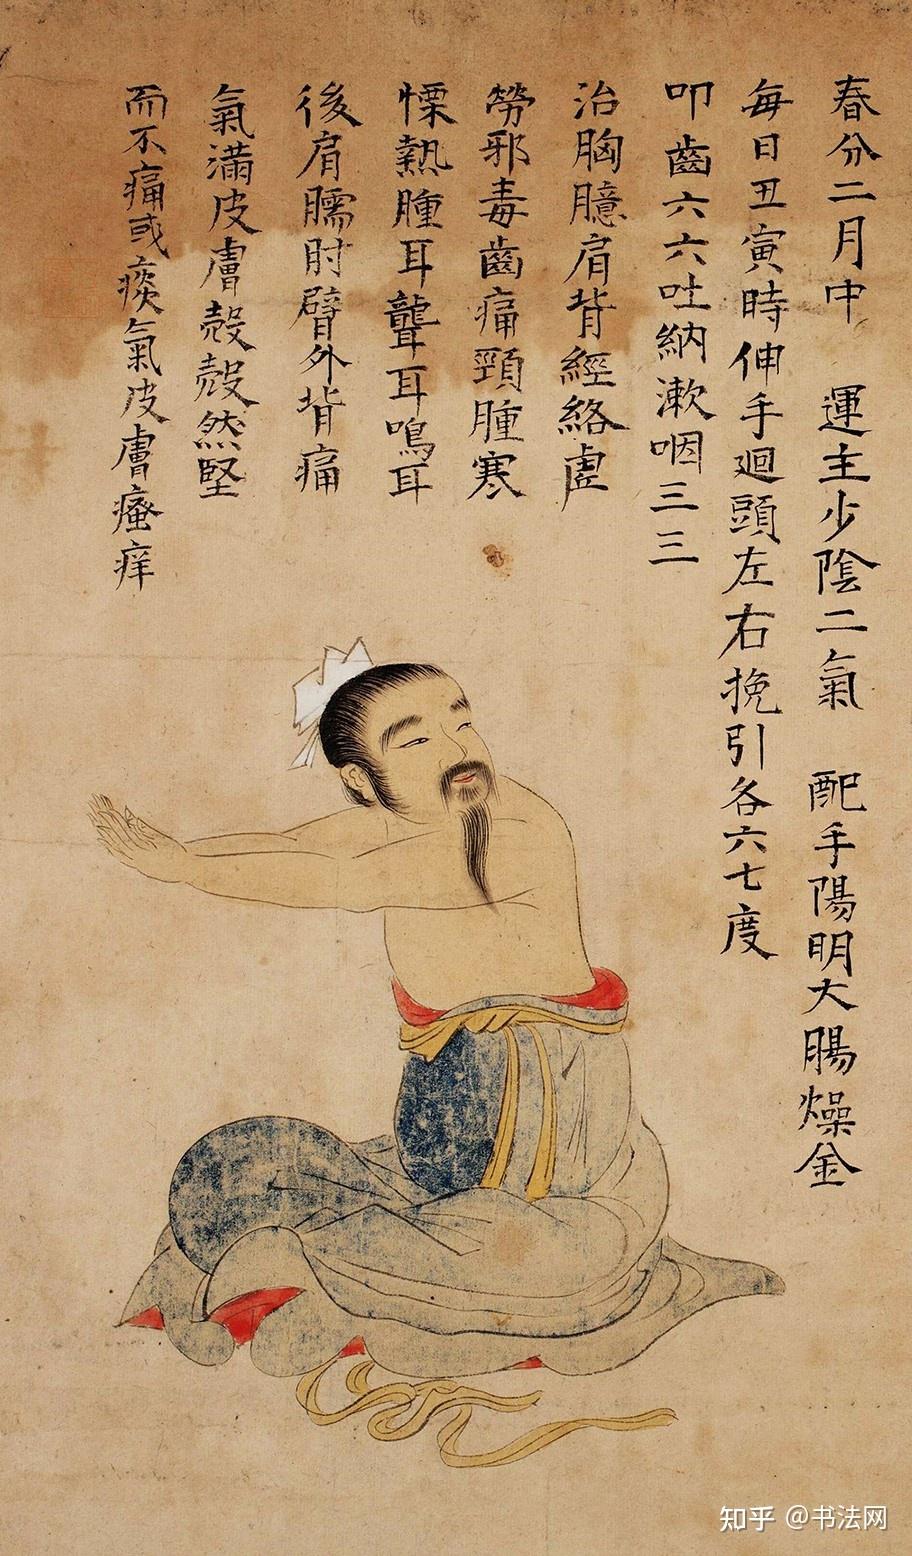 春分二月中 運主少陰二氣 配手陽明大腸燥金
每日丑寅時伸手迴頭左右挽引各六七度
叩齒六六吐納漱咽三三
治胸臆肩背經絡虛
勞邪毒齒痛頸腫寒
慄熱腫耳聾耳鳴耳
後肩臑肘臂外背痛
氣滿皮膚殼殼然堅
而不痛或痰氣皮膚瘙痒
知乎 @书法网